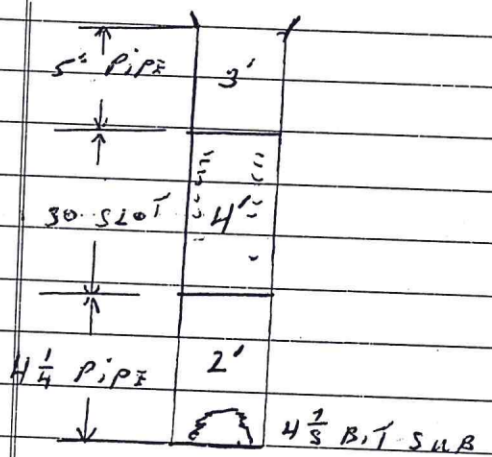 5" PIPE 3'
30 SLOT 4'
4 1/4 PIPE 2'
BIT SUB